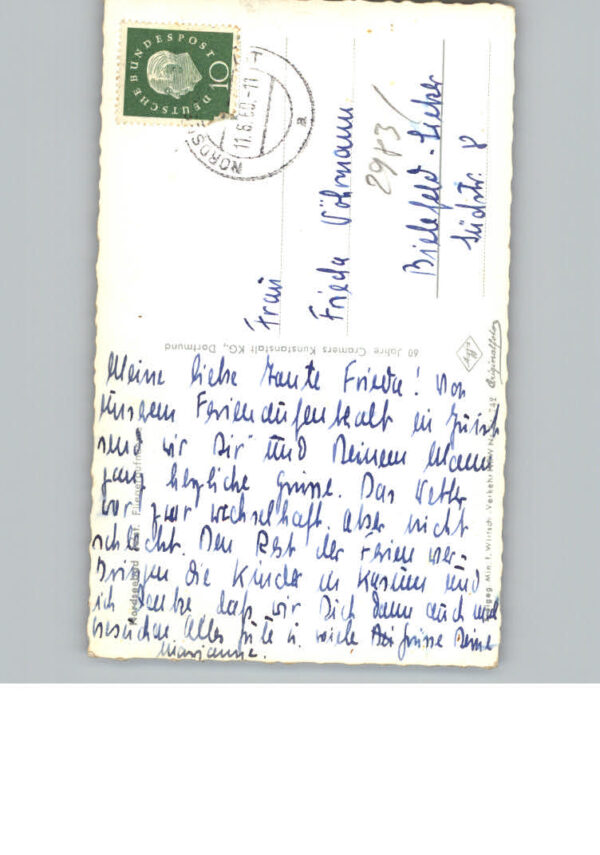 DEUTSCHE BUNDESPOST
10
11.8.60-11
a
Frau
Frieda Vöhrmann
2983/
Bielefeld-Sieker
Südstr. 8
60 Jahre Cramers Kunstanstalt KG., Dortmund
Originalfoto
Meine liebe Tante Frieda! Von
unserem Ferienaufenthalt in Juist
send wir Dir und Deinem Mann
ganz herzliche Grüsse. Das Wetter
war zwar wechselhaft, aber nicht
schlecht. Den Rest der Ferien ver-
bringen die Kinder in und
ich denke daß wir Dich dann auch mal
besuchen. Alles Gute u. viele Grüsse Deine
Marianne.